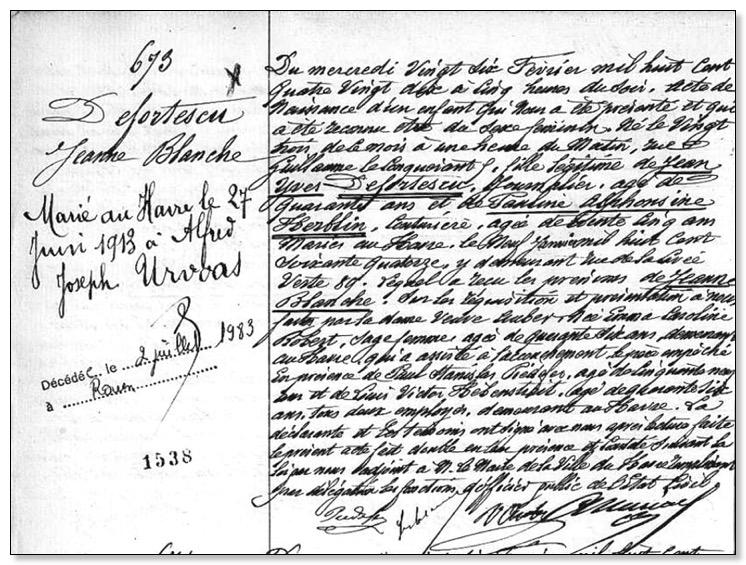 673
Defortescu
Jeanne Blanche
Marié au Havre le 27
Juin 1913 à Alfred
Joseph Urvoas
Décédée le 2 juillet 1983
à Rouen
1538
Du mercredi Vingt Six Février mil huit Cent
quatre Vingt dix à Cinq heures du Soir. Acte de
Naissance d'un enfant qui nous a été présenté et qui
a été reconnu être du Sexe feminin. Né le Vingt
trois de ce mois à une heure du Matin, rue
Guillaume le Conquérant, fille légitime de Jean
Yves Defortescu, Journalier, agé de
quarante ans et de Pauline Alphonsine
Herblin, Couturière, agée de trente Cinq ans
Mariés au Havre le Neuf Janvier mil huit Cent
Soixante quatorze, y demeurant rue de la
Lequel a reçu les prénoms de Jeanne
Blanche. Sur la réquisition et présentation à nous
faite par la dame Veuve Née Emma Caroline
Robert, Sage femme, agée de ans, demeurant
au Havre, qui a assisté à l'accouchement le père empêché
En présence de Paul Stanislas agé de Cinquante
ans et de Louis Victor agé de quarante Six
ans, tous deux employés, demeurant au Havre. La
déclarante et les témoins ont signé avec nous après lecture faite
le présent acte fait double en leur présence et Constaté Suivant la
Loi par nous adjoint à M. le Maire de la Ville du Havre remplissant
par délégation les fonctions d'officier public de l'Etat Civil